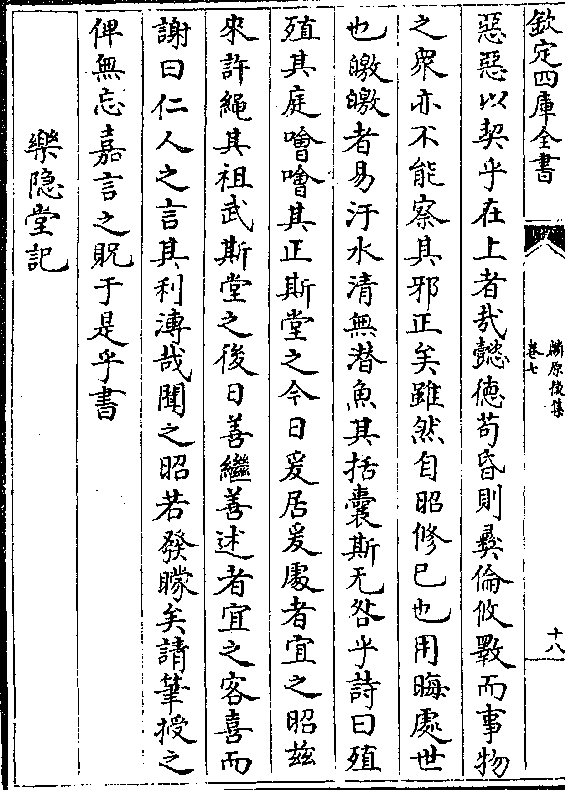 欽定四庫全書
卷七
十八
惡惡以契乎在上者哉懿德苟昏則彛倫攸斁而事物
之衆亦不能察其邪正矣雖然自昭修已也用晦處世
也皦皦者易汙水清無潜魚其括囊斯无咎乎詩曰殖
殖其庭噲噲其正斯堂之今日爰居爰處者宜之昭兹
來許繩其祖武斯堂之後日善繼善述者宜之客喜而
謝曰仁人之言其利溥哉聞之昭若發矇矣請筆授之
俾無忘嘉言之貺于是乎書
樂隐堂記